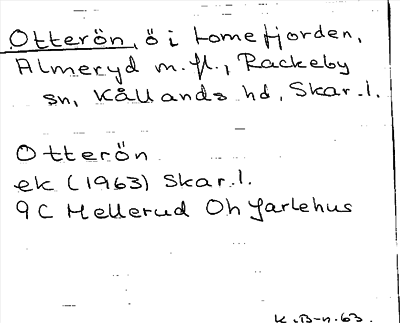 Otterön, ö i tomefjorden,
Almeryd m.fl., Rackeby
sn, Kållands hd, Skar.l.
Otterön
ek (1963) Skar.l.
9C Mellerud Öh Jarlehus
K.B-n.63.